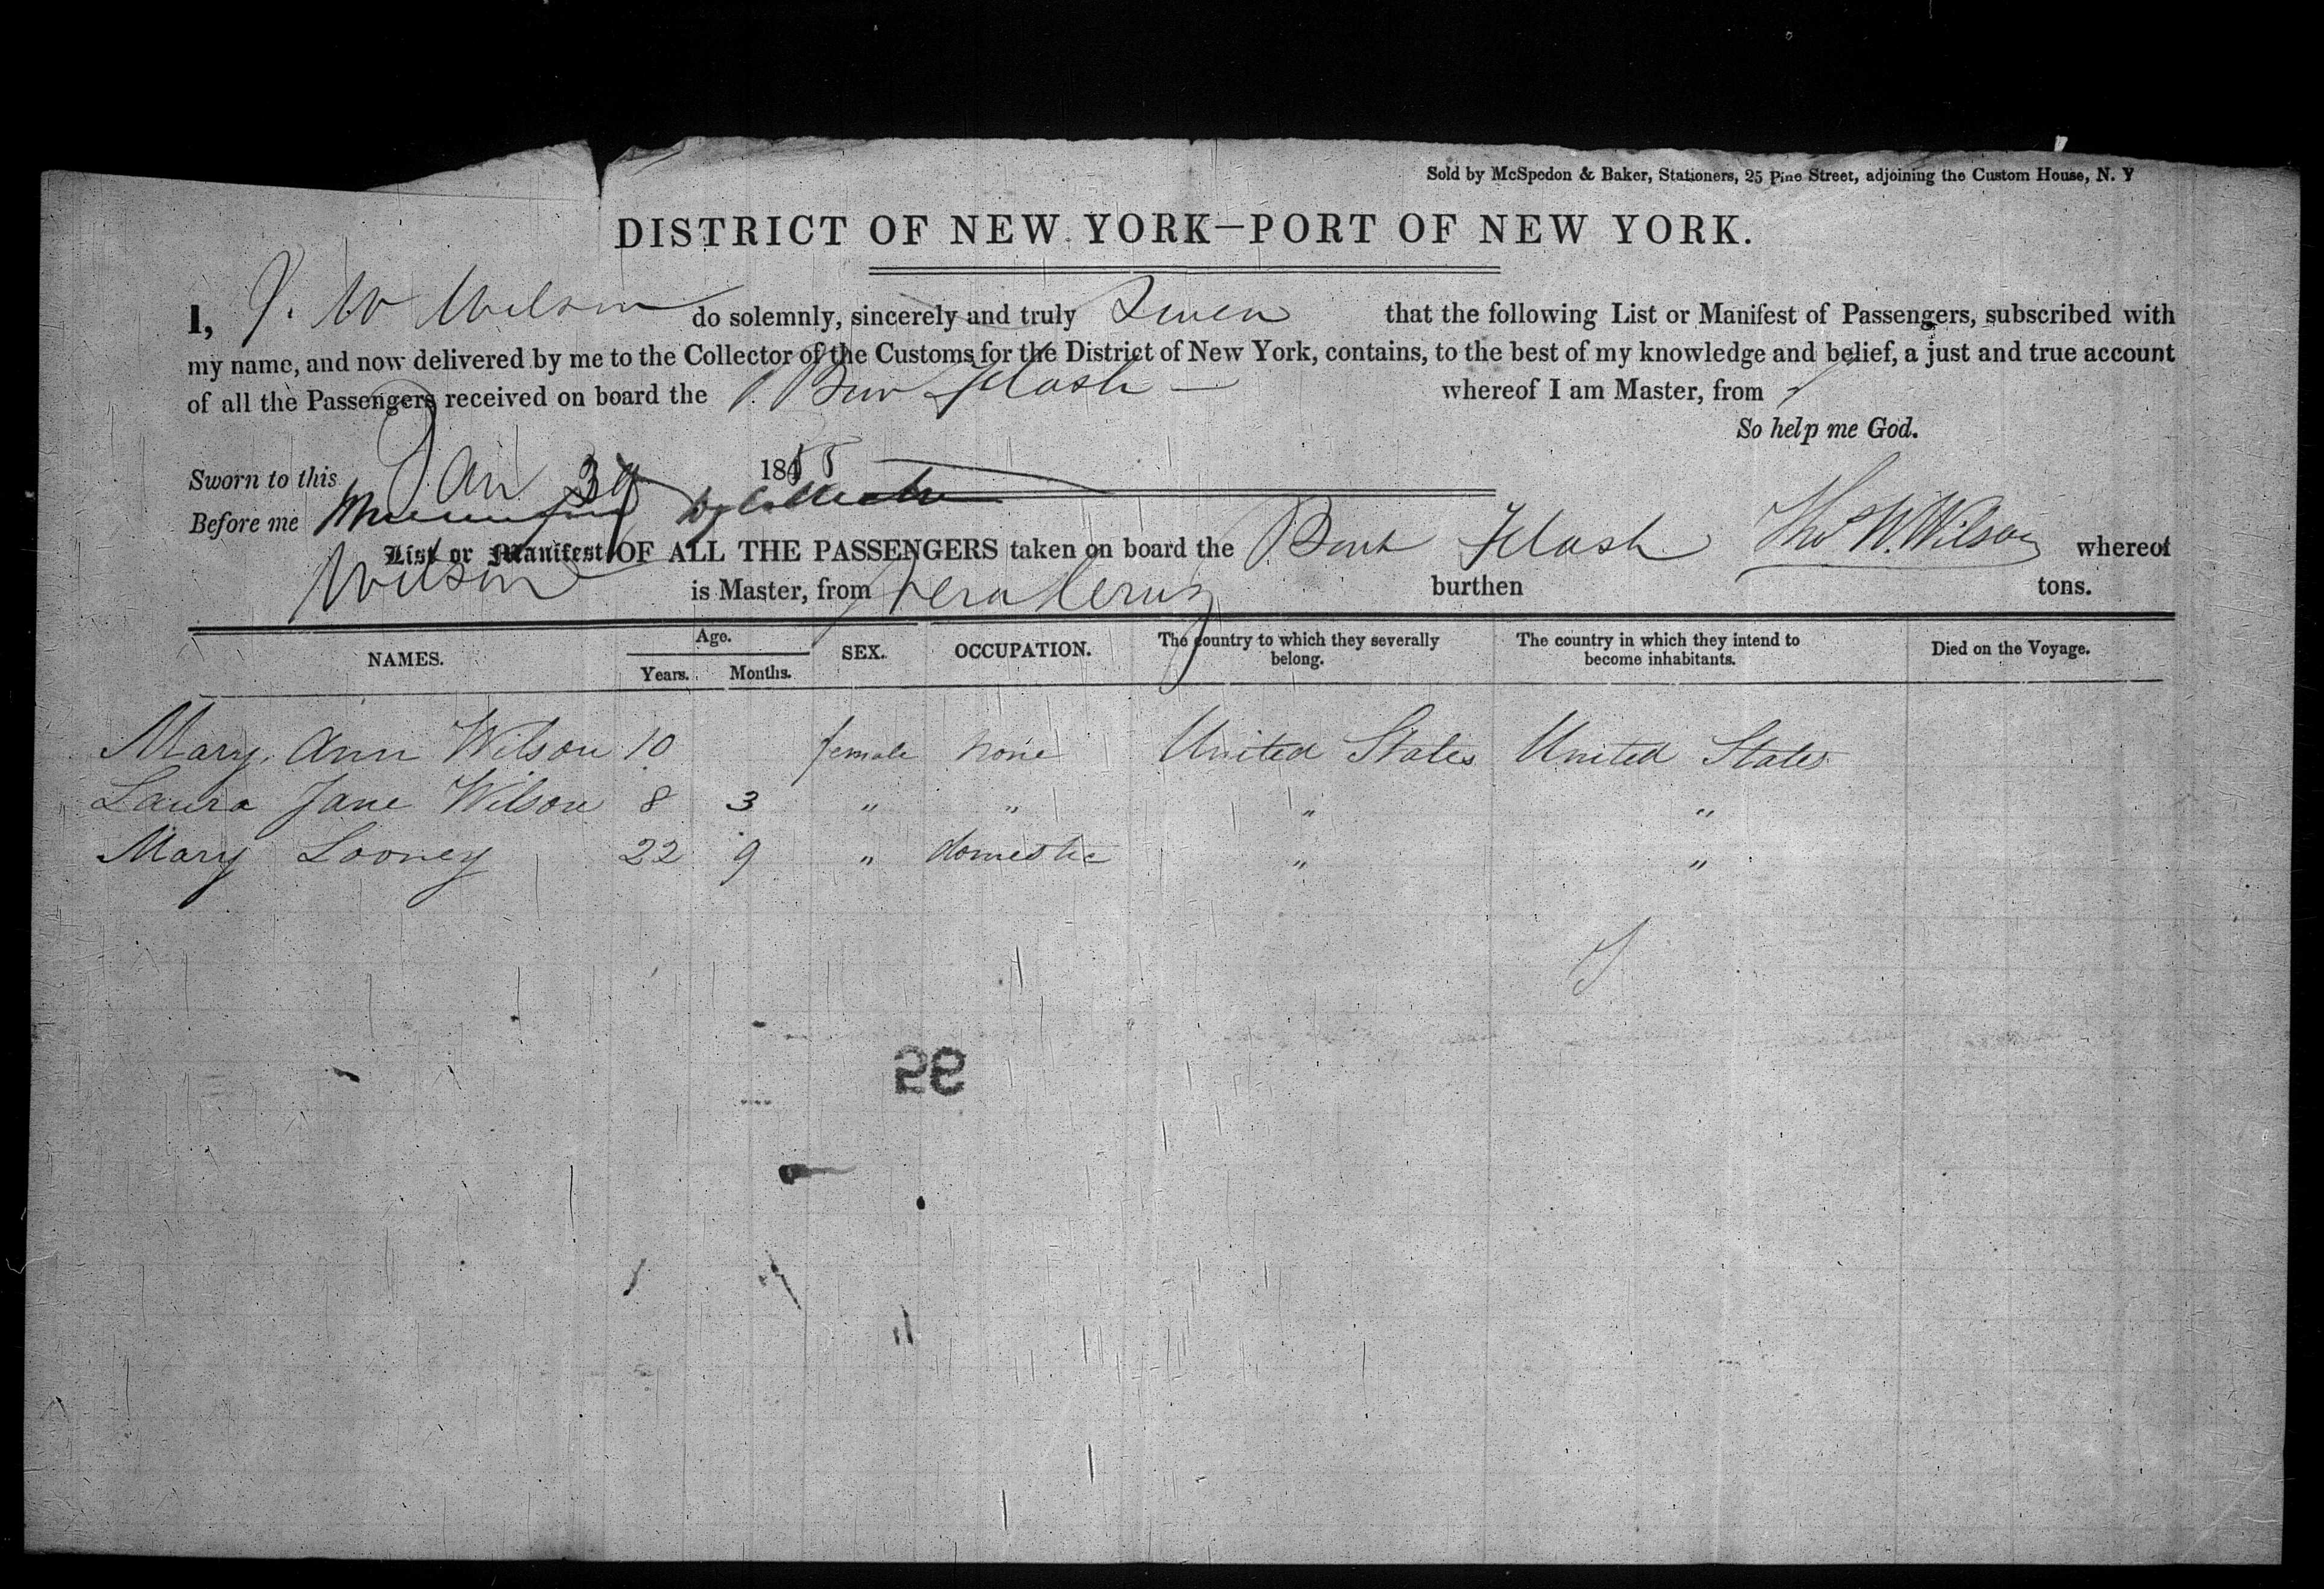 Sold by McSpedon & Baker, Stationers, 25 Pine Street, adjoining the Custom House, N. Y
DISTRICT OF NEW YORK—PORT OF NEW YORK.
I, T. W Wilson do solemnly, sincerely and truly Swear that the following List or Manifest of Passengers, subscribed with
my name, and now delivered by me to the Collector of the Customs for the District of New York, contains, to the best of my knowledge and belief, a just and true account
of all the Passengers received on board the Flash whereof I am Master, from
So help me God.
Sworn to this Jan 185
Before me
List or Manifest OF ALL THE PASSENGERS taken on board the Bark Flash Thos W. Wilson whereof
Wilson is Master, from Vera Cruz burthen tons.
NAMES. Age. Years. Months. SEX. OCCUPATION. The country to which they severally belong. The country in which they intend to become inhabitants. Died on the Voyage.
Mary Ann Wilson 10 female none United States United States
Laura Jane Wilson 8 3 " " " "
Mary Looney 22 9 " domestic " "